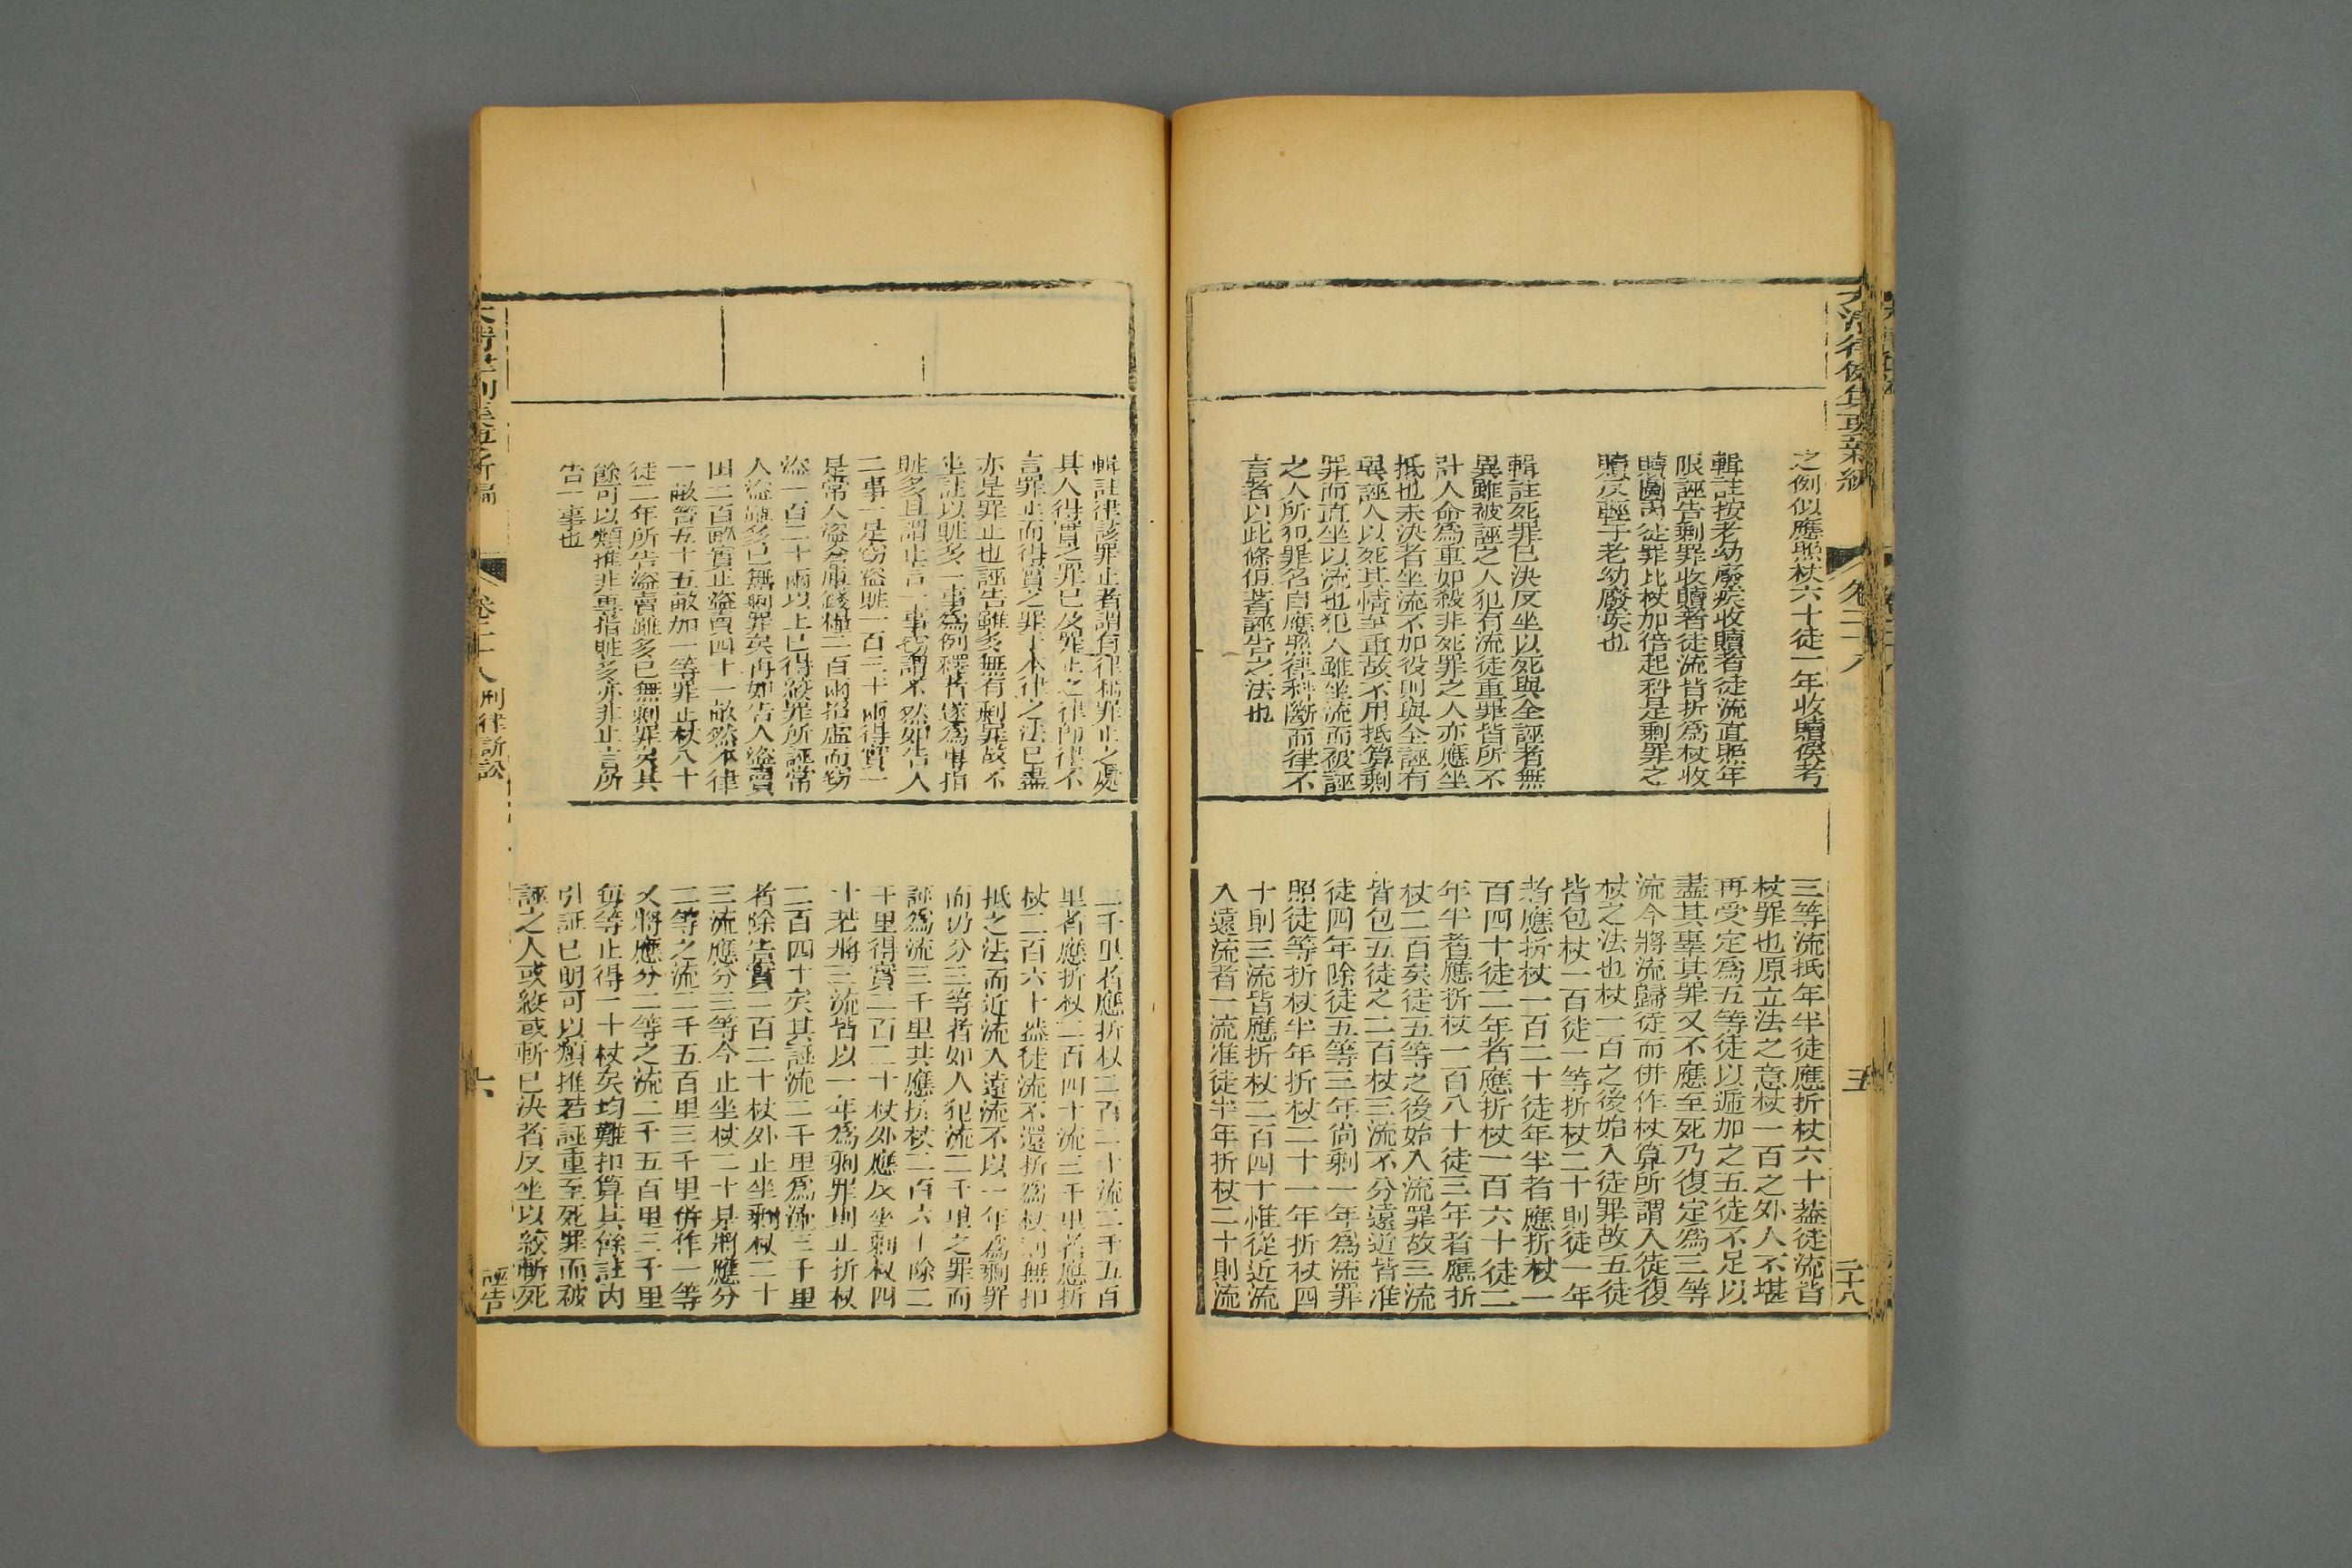 大清律例集要新編
卷二十八
五
二十八
之例似應照杖六十徒一年收贖俟考
輯註按老幼廢疾收贖者徒流直照年
限誣告剩罪收贖者徒流皆折爲杖收
贖圖內徒罪比杖加倍起科是剩罪之
贖反輕于老幼廢疾也
輯註死罪已決反坐以死與全誣者無
異雖被誣之人犯有流徒重罪皆所不
計人命爲重如殺非死罪之人亦應坐
抵也未決者坐流不加役則與全誣有
異誣人以死其情至重故不用抵算剩
罪而直坐以流也犯人雖坐流而被誣
之人所犯罪名自應照律科斷而律不
言者以此條値著誣告之法也
三等流抵年半徒應折杖六十蓋徒流皆
杖罪也原立法之意杖一百之外人不堪
再受定爲五等徒以遞加之五徒不足以
盡其辜其罪又不應至死乃復定爲三等
流今將流歸徒而併作杖算所謂入徒復
杖之法也杖一百之後始入徒罪故五徒
皆包杖一百徒一等折杖二十則徒一年
者應折杖一百二十徒年半者應折杖一
百四十徒二年者應折杖一百六十徒二
年半者應折杖一百八十徒三年者應折
杖二百矣徒五等之後始入流罪故三流
皆包五徒之二百杖三流不分遠近皆准
徒四年除徒五等三年尚剩一年爲流罪
照徒等折杖半年折杖二十一年折杖四
十則三流皆應折杖二百四十惟從近流
入遠流者一流准徒半年折杖二十則流
輯註律該罪止者謂有律稱罪止之處
其人得實之罪已及罪止之律師律不
言罪止而得實之罪于本律之法已盡
亦是罪止也誣告雖多無有剩罪故不
坐註以贓多一事爲例釋者遂爲專指
贓多且謂止言一事竊謂不然如告人
二事一是竊盜贓一百三十兩得實一
是常人盜倉庫錢糧二百兩招虛而竊
盜一百二十兩以上已得絞罪所誣常
人盜雖多已無剩罪矣再如告人盜賣
田二百畝實止盜賣四十一畝然本律
一畝笞五十五畝加一等罪止杖八十
徒二年所告盜賣雖多已無剩罪矣其
餘可以類推非專指贓多亦非止言所
告一事也
二千里者應折杖二百二十流二千五百
里者應折杖二百四十流三千里者應折
杖二百六十蓋徒流不還折爲杖則無扣
抵之法而近流入遠流不以一年爲剩罪
而仍分三等者如人犯流二千里之罪而
誣爲流三千里共應折杖二百六十除二
千里得實二百二十杖外應反坐剩杖四
十若將三流皆以一年爲剩罪則止折杖
二百四十矣其誣流二千里爲流三千里
者除告實二百二十杖外止坐剩杖二十
三流應分三等今止坐杖二十是將應分
二等之流二千五百里三千里併作一等
又將應分二等之流二千五百里三千里
每等止得一十杖矣均難扣算其餘註內
引証已明可以類推若誣重至死罪而被
誣之人或絞或斬已決者反坐以絞斬死
大清律例集要新編
卷二十八
刑律訴訟
六
誣告